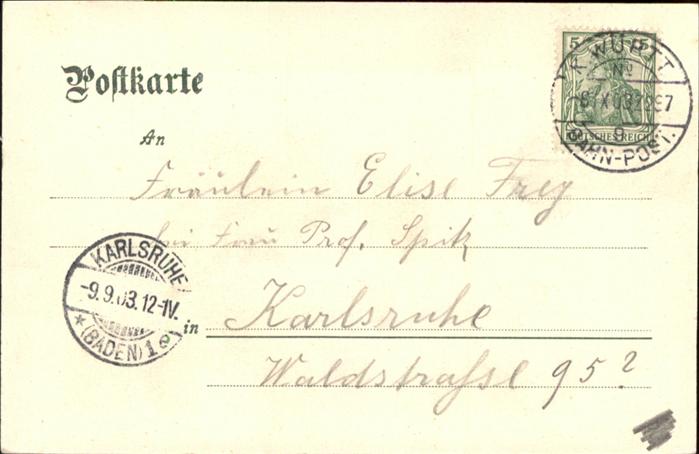 Postkarte
5 5
DEUTSCHES REICH
K. WÜRTT.
No
BAHN-POST.
An
Fräulein Elise Frey
bei Frau Prof. Spitz
KARLSRUHE
-9.9.03.12-1V.
* (BADEN) 1
in Karlsruhe
Waldstraße 95?